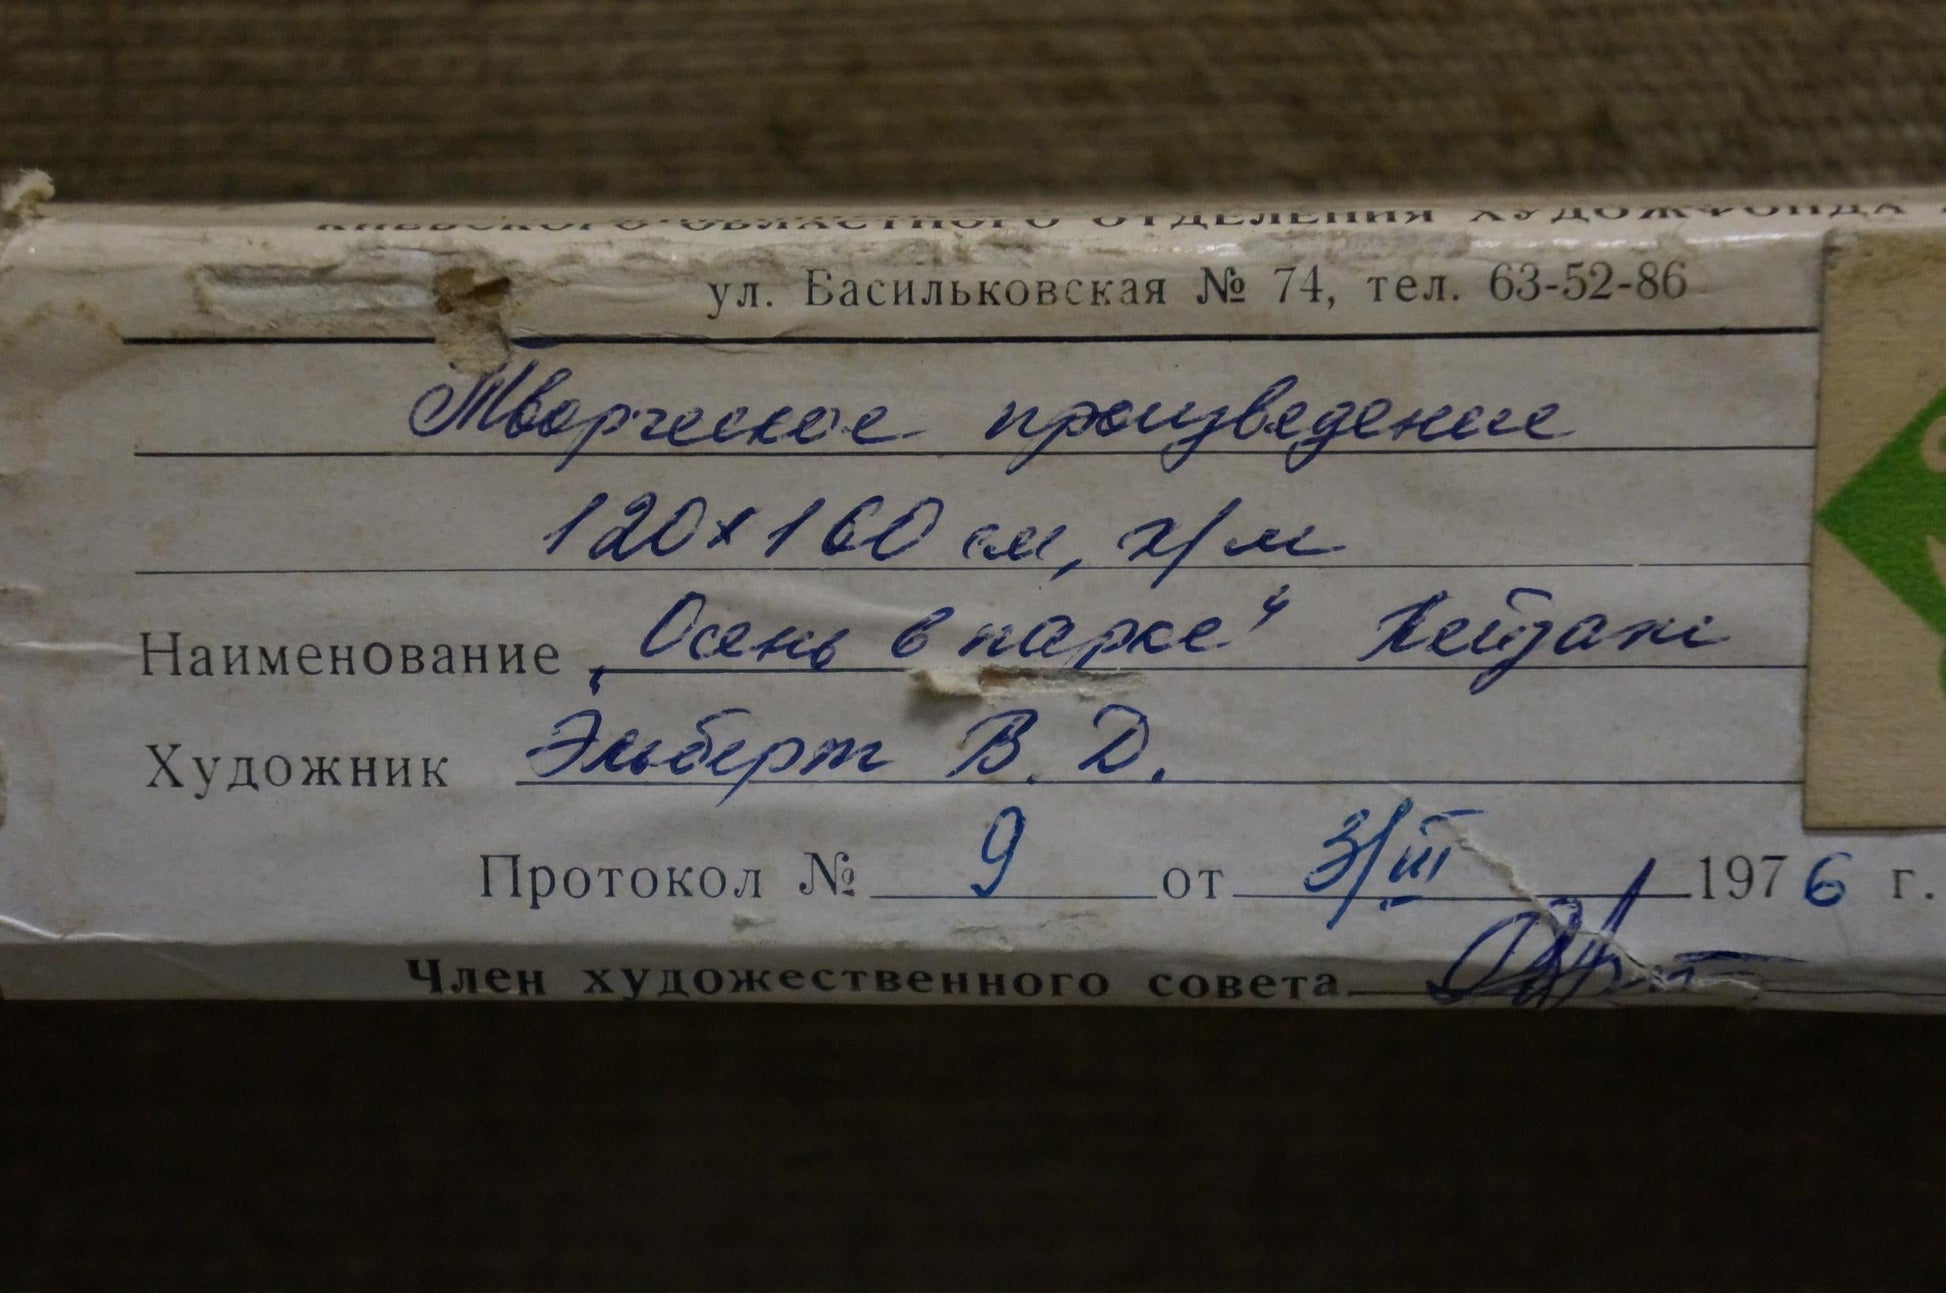 КИЕВСКОГО ОБЛАСТНОГО ОТДЕЛЕНИЯ ХУДОЖФОНДА
ул. Васильковская № 74, тел. 63-52-86
Творческое произведение
120х160 см, х/м
Наименование „Осень в парке“ Пейзаж
Художник Эльберт В. Д.
Протокол № 9 от 3/III 1976 г.
Член художественного совета